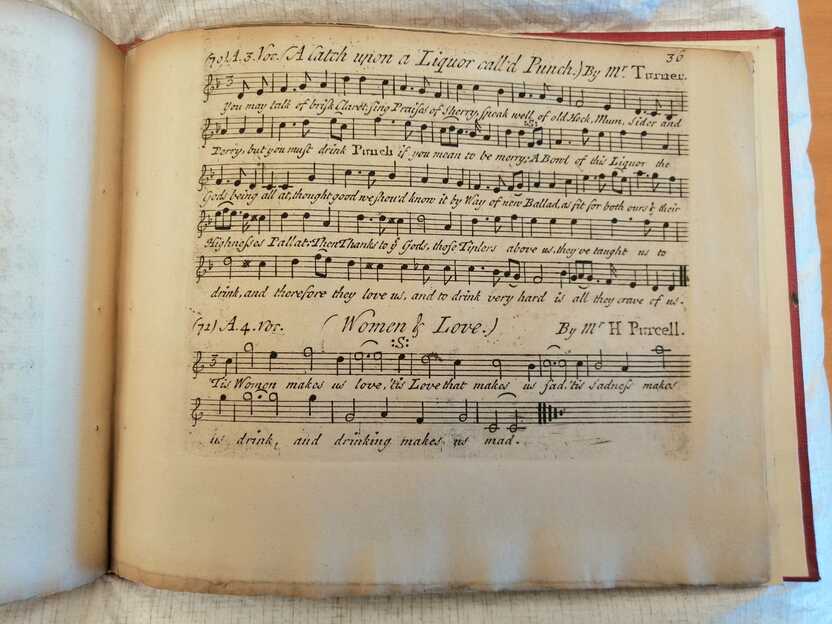 36
(70) A. 3. Voc. (A Catch upon a Liquor call'd Punch.) By Mr. Turner.
You may talk of brisk Claret, sing Praises of Sherry, speak well of old Hock, Mum, Sider and
Perry, but you must drink Punch if you mean to be merry; A Bowl of this Liquor the
Gods being all at, thought good we shou'd know it by Way of new Ballad, as fit for both ours & their
Highnesses Pallat; Then Thanks to ye Gods, those Tiplers above us, they've taught us to
drink, and therefore they love us, and to drink very hard is all they crave of us.
(71) A. 4. Voc. (Women & Love.) By Mr. H Purcell.
:S:
'Tis Women makes us love, 'tis Love that makes us sad, 'tis sadness makes
us drink, and drinking makes us mad.